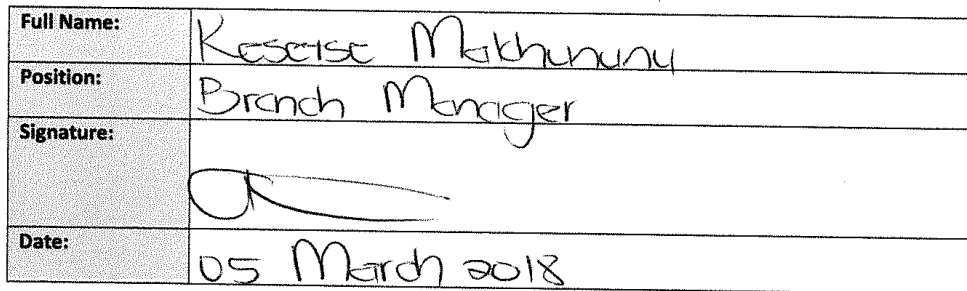 Full Name: Keseise Makhununu
Position: Branch Manager
Signature:
Date: 05 March 2018